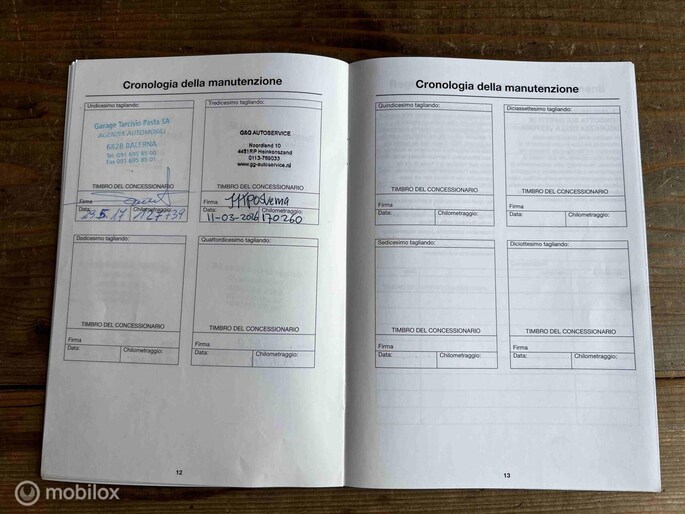 Cronologia della manutenzione
Undicesimo tagliando:
Garage Tarcisio Pasta SA
AGENZIA AUTOMOBILI
6828 BALERNA
Tel. 091 695 85 00
Fax 091 695 85 01
TIMBRO DEL CONCESSIONARIO
Firma
Data:
Chilometraggio:
29.5.17
127739
Tredicesimo tagliando:
G&G AUTOSERVICE
Noordland 10
4451RP Heinkenszand
0113-769033
www.gg-autoservice.nl
TIMBRO DEL CONCESSIONARIO
Firma
Data:
Chilometraggio:
11-03-2026
170260
Dodicesimo tagliando:
TIMBRO DEL CONCESSIONARIO
Firma
Data:
Chilometraggio:
Quattordicesimo tagliando:
TIMBRO DEL CONCESSIONARIO
Firma
Data:
Chilometraggio:
12
Cronologia della manutenzione
Quindicesimo tagliando:
TIMBRO DEL CONCESSIONARIO
Firma
Data:
Chilometraggio:
Diciassettesimo tagliando:
TIMBRO DEL CONCESSIONARIO
Firma
Data:
Chilometraggio:
Sedicesimo tagliando:
TIMBRO DEL CONCESSIONARIO
Firma
Data:
Chilometraggio:
Diciottesimo tagliando:
TIMBRO DEL CONCESSIONARIO
Firma
Data:
Chilometraggio:
13
mobilox